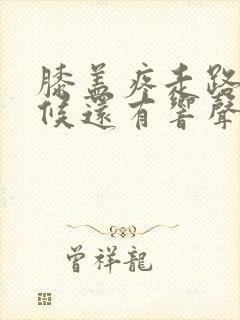 膝盖疼走路
候还有響聲
曾祥龍